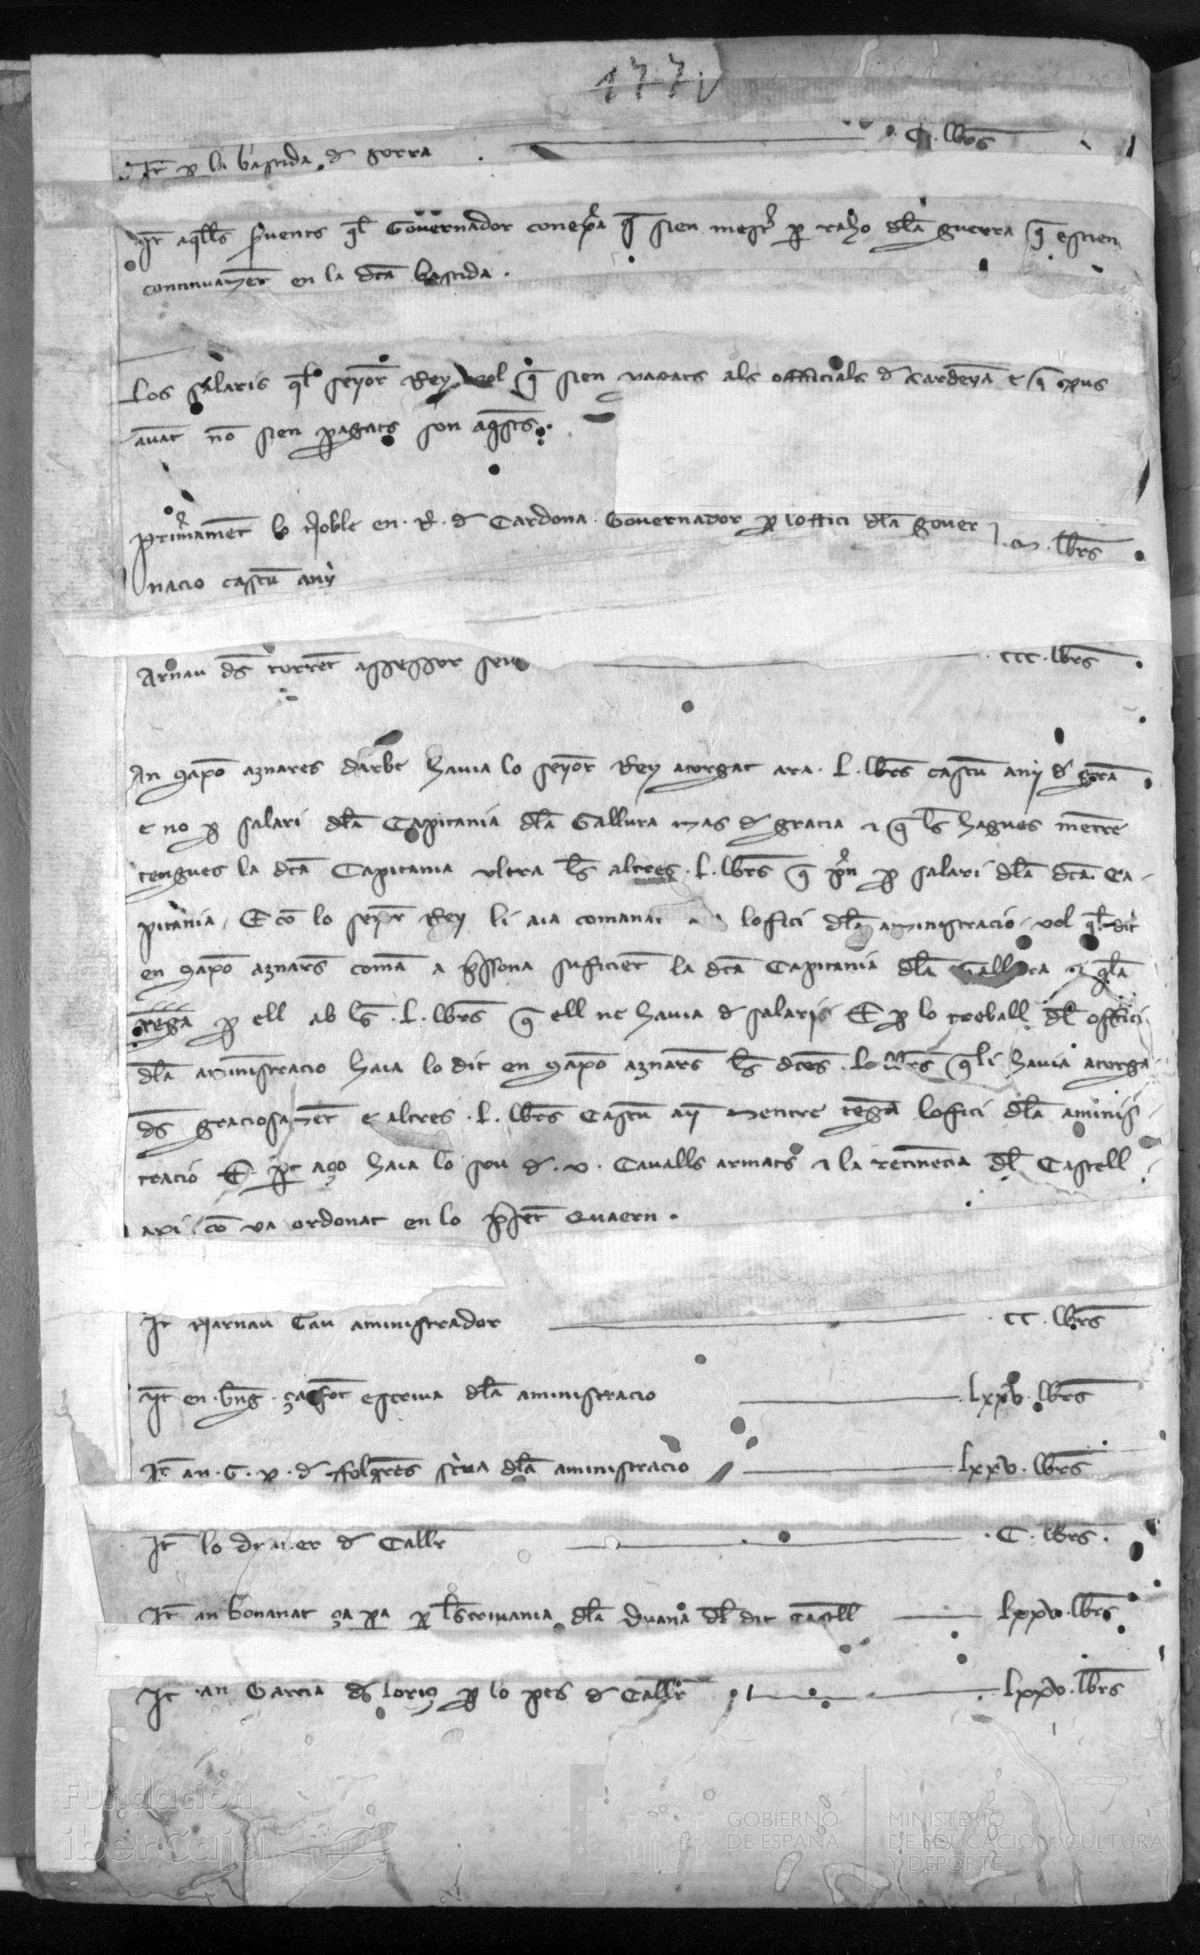 177v
It p la bastida d gorra C lbrs
It aqlls svents ql Governador conexa q sien mest p raho dla guerra q estien
continuamet en la dca bastida.
Los salaris ql seyor Rey vol q sien pagats als officials d Cardeya e q pus
avat no sien pagats son aqsts.
Primamet lo noble en R. d Cardona Governador p loffici dla gover
nacio cascu any M lbrs
Arnau ds torret assessor seu CCC lbrs
An aznares darbe havia lo seyor Rey atorgat ara L lbrs cascu any d gra
e no p salari dla Capitania dla Gallura mas d gracia q ls hagues metre
tengues la dca Capitania ultra ls altres L lbrs q pn p salari dla dca Ca
pitania E co lo seyor Rey li aia comanat lofici dla aministracio vol ql dit
en aznars coma a pssona suficiet la dca Capitania dla Gallura qla
tega p ell ab ls L lbrs q ell ne havia d salari E p lo treball dl offici
dla aministracio haia lo dit en aznars ls dces L lbrs q li havia atorga
ds graciosamet e altres L lbrs Cascu ay mentre tega loffici dla aminis
tracio E p aço haia lo sou d V Cavalls armats la retinecia dl Castell
axi co va ordonat en lo pset Quaern.
It Narnau Cau aministrador CC lbrs
It en bng çafot escriva dla aministracio LXXV lbrs
It an G. p. d ffolqres scva dla aministracio LXXV lbrs
It lo duaner d Callr C lbrs
It an bonanat ça pa p lscrivania dla Duana dl dit Castell LXXV lbrs
It an Garcia ds loriz p lo pes d Callr LXXV lbrs
Fundación
iberCaja
GOBIERNO
DE ESPAÑA
MINISTERIO
DE EDUCACIÓN, CULTURA
Y DEPORTE